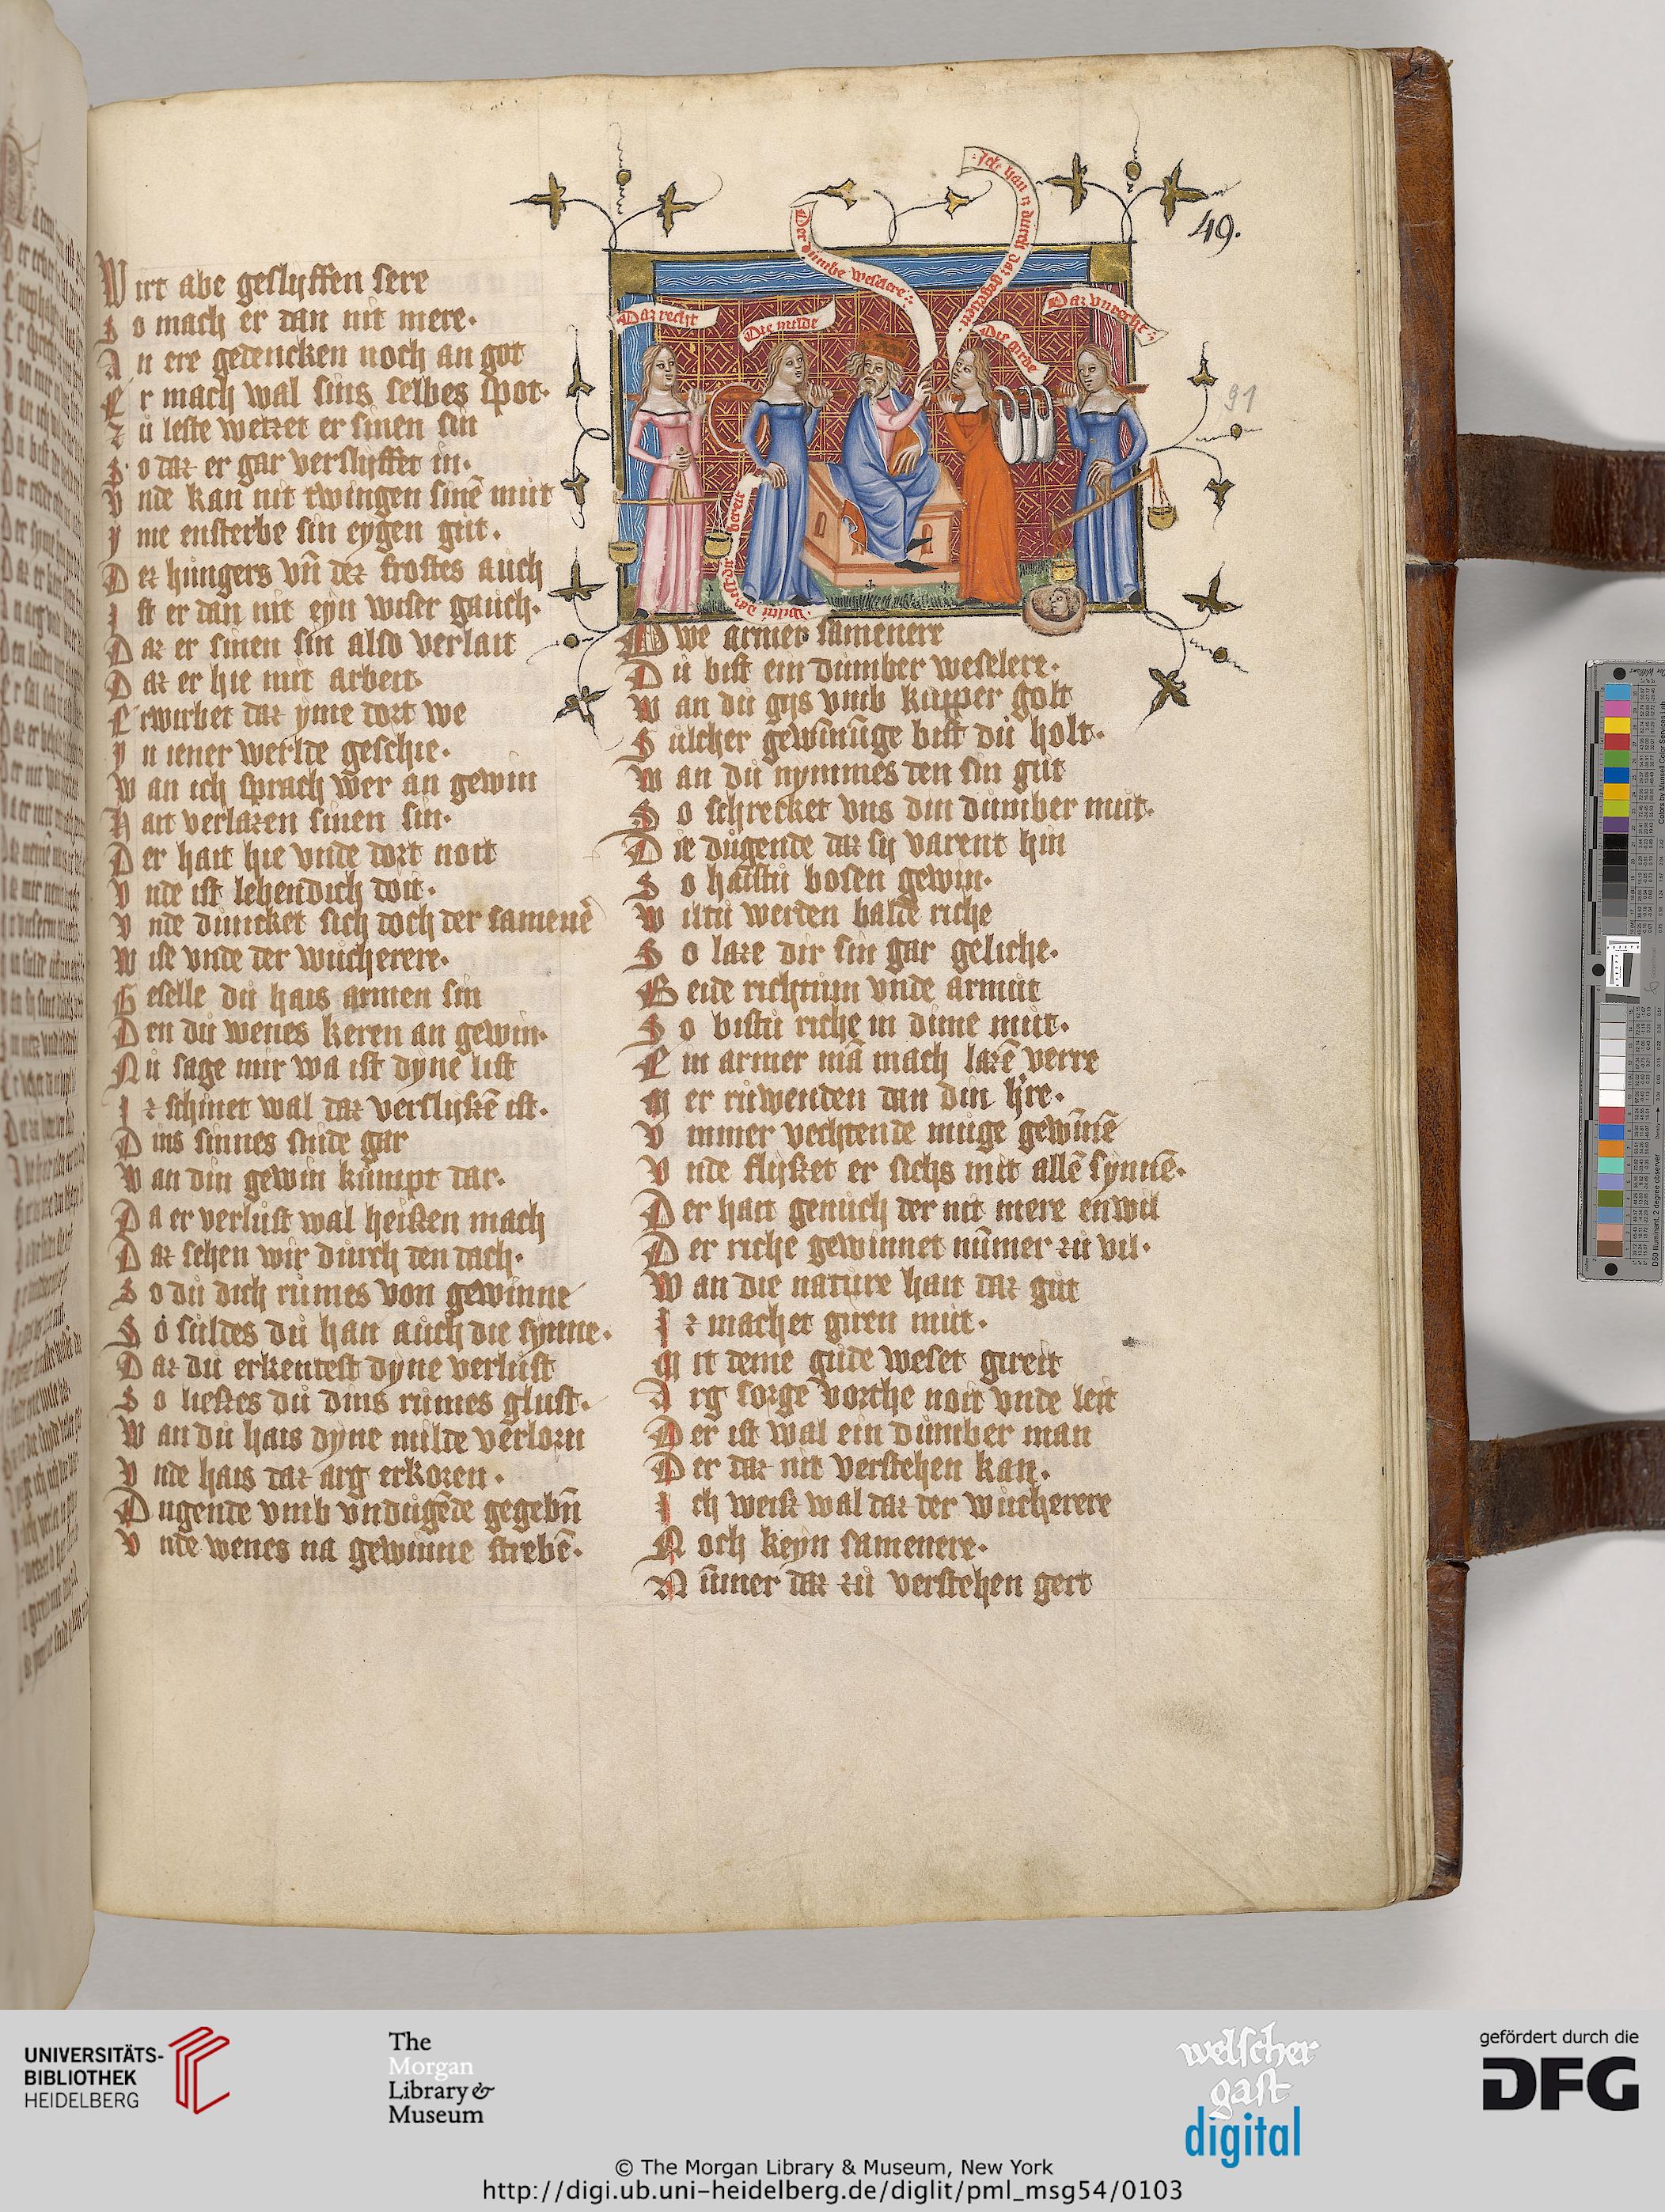 49.
91
Ich han iz durch daz
Der dumbe weselere
Daz recht
Die milde
Die girde
Daz vnrecht
Wirt abe geslyffen sere
So mach er dan nit mere·
An ere gedencken noch an got
Er mach wal sins selbes spot·
Zu leste wetzet er sinen sin
So daz er gar verslyffet in·
Vnde kan nit twingen sinē mut
Yme ensterbe sin eygen gut·
Dez hungers vn̄ dez frostes auch
Ist er dan nit eyn wiser gauch·
Daz er sinen sin also verlait
Daz er hie mit arbeit·
Erwirbet daz yme dort we
In iener werlde geschie·
Wan ich sprach wer an gewin
Hait verlazen sinen sin·
Der hait hie vnde dort noit
Vnde ist lebendich doit·
Vnde duncket sich doch der samenē
Wise vnde der wucherere·
Geselle du hais armen sin
Den du wenes keren an gewin·
Nu sage mir wa ist dyne list
Iz schinet wal daz verslyszē ist·
Dins sinnes snide gar
Wan din gewin kumpt dar·
Da er verlust wal heiszen mach
Daz sehen wir durch den dach·
So du dich rumes von gewinne
So suldes du han auch die synne·
Daz du erkentest dyne verlust
So lieszes du dins rumes glust·
Wan du hais dyne milde verlorn
Vnde hais daz arg erkoren·
Dugende vmb vndugēde gegebn̄
Vnde wenes na gewinne strebē·
Owe armer samenere
Du bist ein dumber weselere·
Wan du gys vmb kupper golt
Sulcher gewinnūge bist du holt·
Wan du nymmes den sin gut
So schrecket vns din dumber mut·
Die dugende daz sy varent hin
So haistu bosen gewin·
Wiltu werden balde riche
So laze dir sin gar geliche·
Beide richtum vnde armut
So bistu riche in dime mut·
Ein armer mā mach lazē verre
Mer ruwenden dan din h're·
Vmmer vechtende muge gewīnē
Vnde flyszet er sichs mit allē synnē·
Der hait genuch der nit mere enwil
Der riche gewinnet nūmer zu vil·
Wan die nature hait daz gut
Iz machet giren mut·
Mit deme gude weset gireit
Arg sorge vorthe noit vnde leit
Der ist wal ein dumber man
Der daz nit verstehen kan·
Ich weisz wal daz der wucherere
Noch keyn samenere·
Nūmer daz zu verstehen gert
UNIVERSITÄTS-
BIBLIOTHEK
HEIDELBERG
The
Morgan
Library &
Museum
welscher
gast
digital
gefördert durch die
DFG
© The Morgan Library & Museum, New York
http://digi.ub.uni-heidelberg.de/diglit/pml_msg54/0103